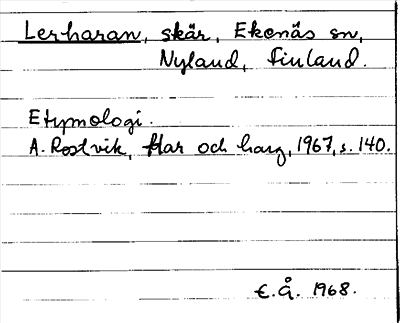 Lerharan, skär, Ekenäs sn,
Nyland, Finland.
Etymologi.
A. Rostvik, Har och harg, 1967, s. 140.
E.Å. 1968.